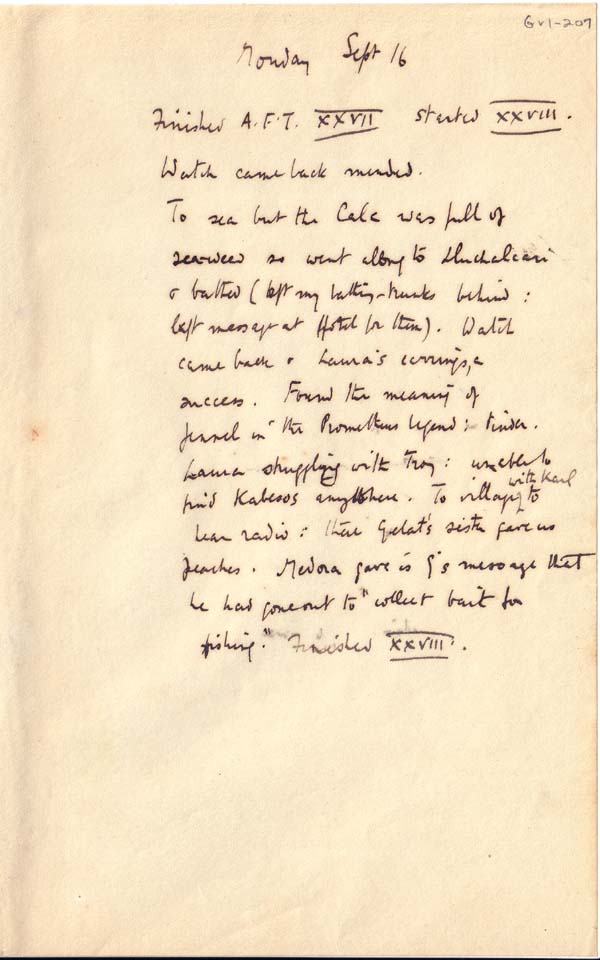 GV1-207
Monday Sept 16
Finished A.F.T. XXVII started XXVIII.
Watch came back mended.
To sea but the Cala was full of
seaweed so went along to Lluchalcari
& bathed (left my bathing-trunks behind:
left message at Hotel for them). Watch
came back & Laura's earrings, a
success. Found the meaning of
fennel in the Prometheus legend: tinder.
Laura struggling with Troy: unable to
find Kabesos anywhere. To village with Karl to
hear radio: there Gelat's sister gave us
peaches. Medora gave us G's message that
he had gone out to "collect bait for
fishing." Finished XXVIII.